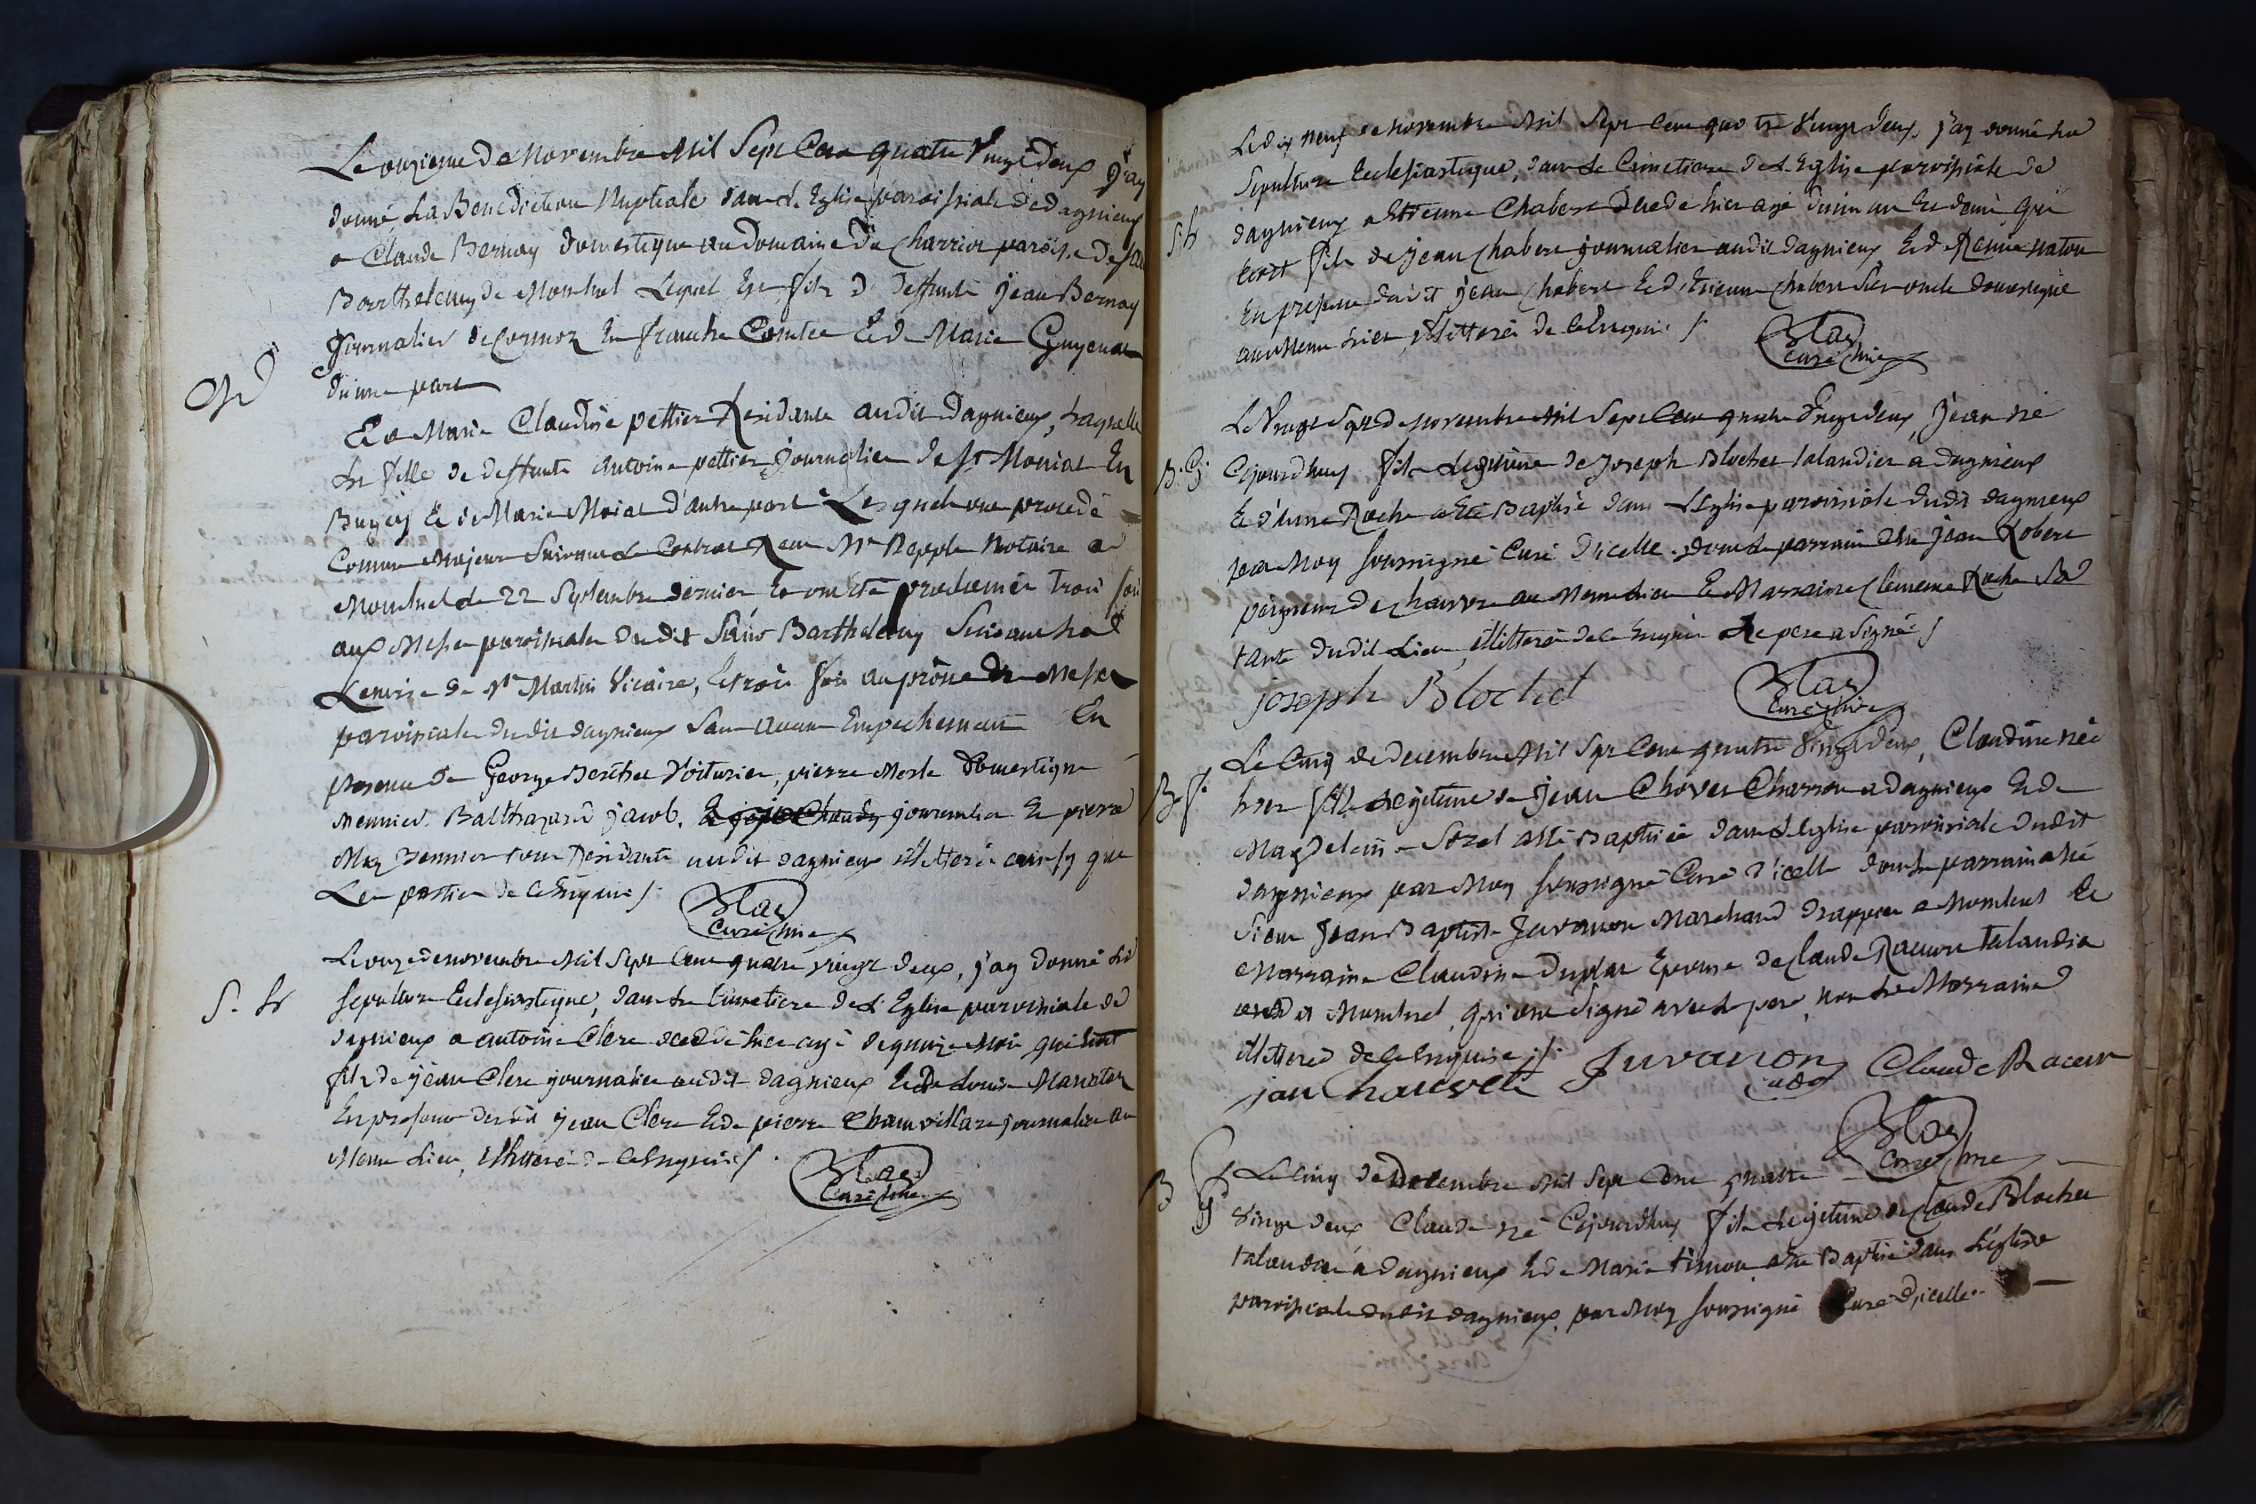 Le onzieme de Novembre Mil Sept Cen quatre Vingt deux J'ay
donné La Benediction Nuptiale dans L'Eglise paroissiale de dagnieux
a Claude Bernay domestique au Domaine Du Charrier paroisse De St
Barthelemy de Montluel Lequel Est fils de deffunts Jean Bernay
Journalier de Cormoz En franche Comtée Et de Marie Guyenat
d'une part
M
Et a Marie Claudine pettier Residante audit dagnieux, Laquelle
Est fille de deffunts antoine pettier journalier de St Moniat En
Bugey Et de Marie Moiat d'autre part Lesquels ont procedé
Comme Majeur Suivant Le Contrat Reçu Mr Repple Notaire a
Montluel Le 22 Septembre dernier Et ont Eté proclamés trois fois
aux Messes paroissiales dudit Saint Barthelemy Suivant La
Remise de Mr Martin Vicaire, Et trois fois au prône De Messes
paroissiales dudit dagnieux Sans aucun Empechement En
presence de George Berthet Voiturier, pierre Merle Domestique
Meunier. Balthazard jacob, journalier Et pierre
tous Residants audit dagnieux illitterés ainsy que
Les parties de Ce Enquis /.
Blas
Curé
Le onze de novembre Mil Sept Cent quatre vingt deux, j'ay donné La
S. h
sepulture Eclesiastique, dans Le Cimetiere de L'Eglise paroissiale de
dagnieux a antoine Clerc decedé hier agé de quinze Mois qui Etoit
fils de jean Clerc journalier audit dagnieux Et de Louise
En presence dudit jean Clerc Et de pierre Chanvillard journalier au
Meme Lieu, illitterés de Ce Enquis /.
Blas
Curé
Le dix neuf de novembre Mil Sept Cent quatre Vingt deux, j'ay donné La
Sepulture Eclesiastique, dans Le Cimetiere de L'Eglise paroissiale de
S. h
dagnieux a Etienne Chabert Decedé hier agé d'un an Et demi qui
Etoit fils de jean Chabert journalier audit dagnieux Et de Reine naton
En presence dudit jean Chabert Et d'Etienne Chabert Son oncle domestique
au Meme Lieu, illitterés de Ce Enquis /.
Blas
Curé
Le Vingt Sept de novembre Mil Sept Cent quatre Vingt deux, Jean né
B. G
Cejourdhuy fils Legitime de Joseph Blochet talandier a dagnieux
Et d'anne Roche a Eté Baptisé dans L'Eglise paroissiale dudit dagnieux
par Moy Soussigné Curé D'icelle. dont Le parrain a Eté Jean Robert
peigneur de chanvre au Meme Lieu Et Marraine Clemence Roche Sa
tante dudit Lieu, illitterés de Ce Enquis Le pere a Signé /
joseph Blochet
Blas
Curé
Le Cinq de decembre Mil Sept Cent quatre Vingt deux, Claudine née
B. f.
hier fille Legitime de Jean Chovet Charron a dagnieux Et de
Magdeleine Sozet a Eté Baptisée dans L'Eglise paroissiale dudit
dagnieux par Moy Soussigné Curé D'icelle dont Le parrain a Eté
Sieur Jean Baptiste Juvanon Marchand Drappier a Montluel Et
Marraine Claudine Duplat Epouse de Claude Racurt talandier
audit Montluel, qui ont Signé avec Le pere, non La Marraine
illitterée de Ce Enquise ./.
jan Chauvet Juvanon cadet Claude Racur
Blas
Curé
B G
Le Cinq de Decembre Mil Sept Cent quatre
Vingt deux Claude né Cejourdhuy fils Legitime de Claude Blochet
talandier a dagnieux Et de Marie timon a Eté Baptisé dans L'Eglise
paroissiale dudit dagnieux, par Moy Soussigné Curé D'icelle.